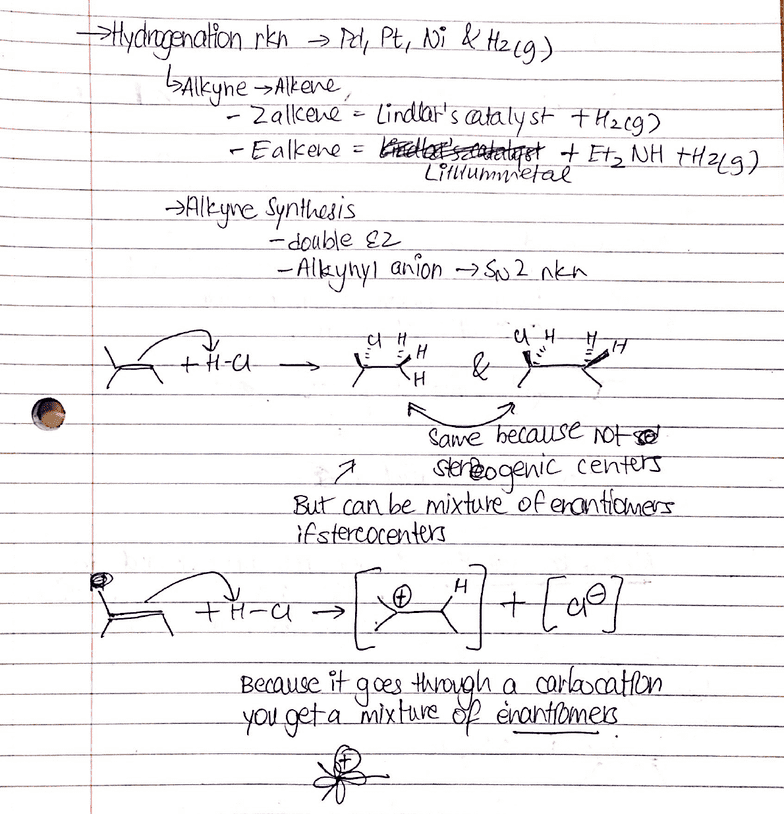 →Hydrogenation rkn → Pd, Pt, Ni & H2(g)
↳Alkyne → Alkene
- Z alkene = Lindlar's catalyst + H2(g)
- E alkene = Lindlar's catalyst + Et2 NH + H2(g)
Lithium metal
→Alkyne Synthesis
- double E2
- Alkynyl anion → SN2 rkn
+ H-Cl → Cl H H H & Cl H H H
Same because not
stereogenic centers
But can be mixture of enantiomers
if stereocenters
+ H-Cl → [ ⊕ H ] + [ Cl⊖ ]
Because it goes through a carbocation
you get a mixture of enantiomers
+